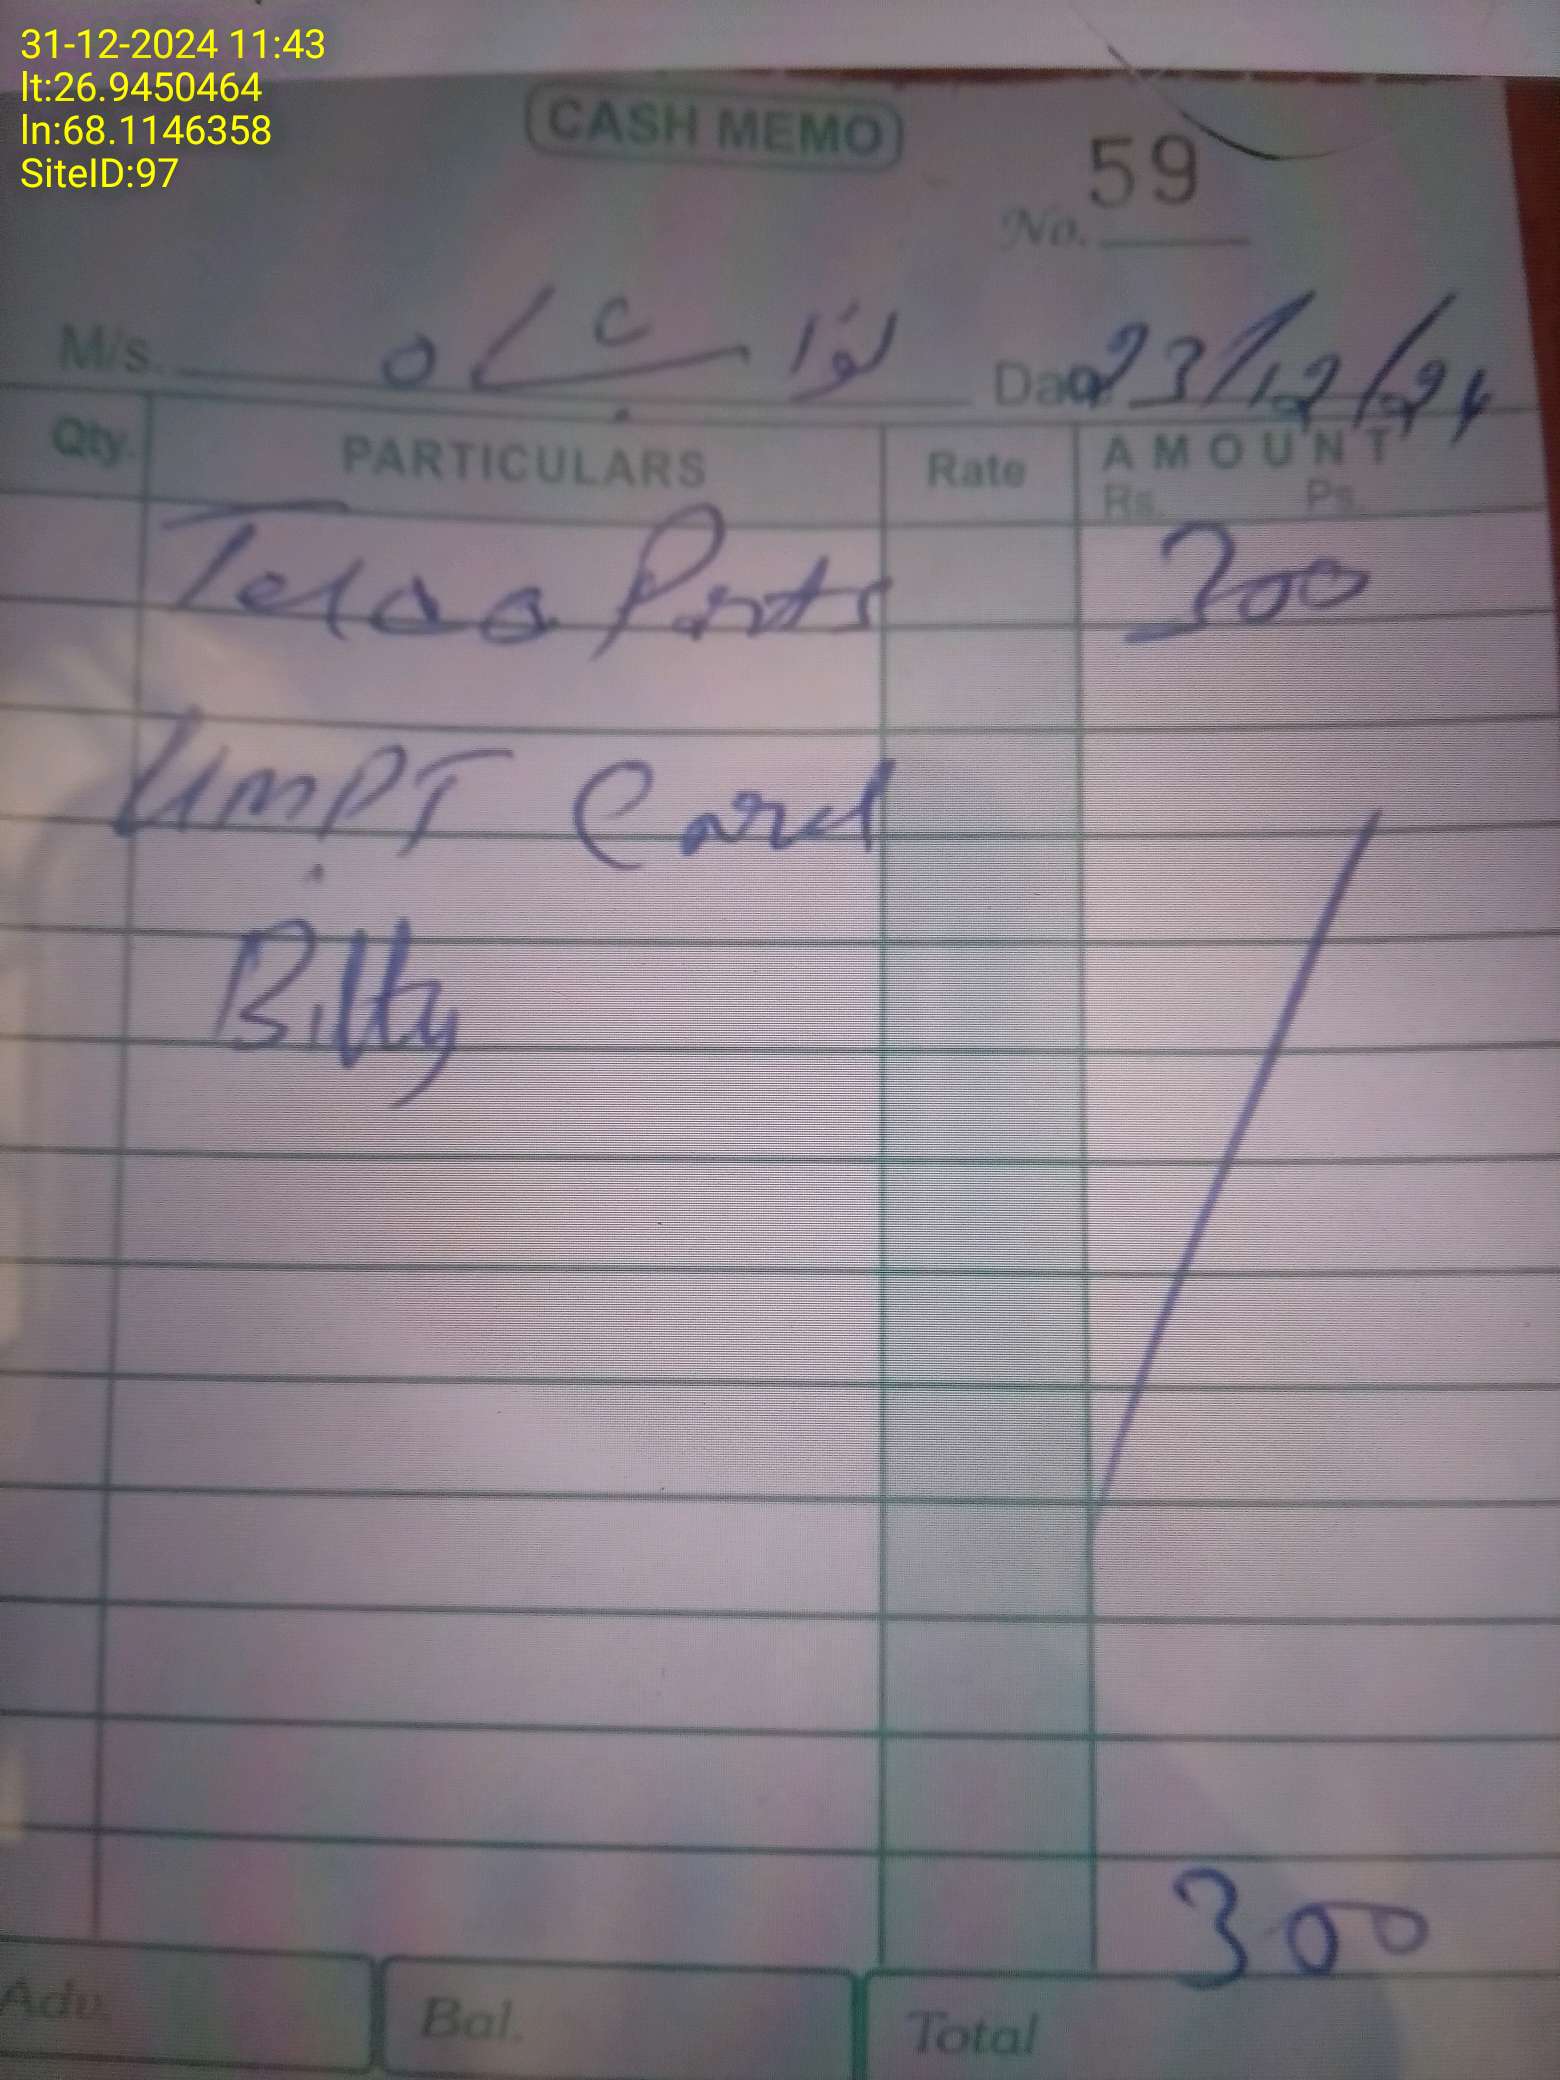 31-12-2024 11:43
lt:26.9450464
ln:68.1146358
SiteID:97
CASH MEMO
No. 59
M/s. Date 23/12/24
Qty. PARTICULARS Rate AMOUNT
Rs. Ps.
Parts 300
UMPT Card
Bilty
300
Adv. Bal. Total